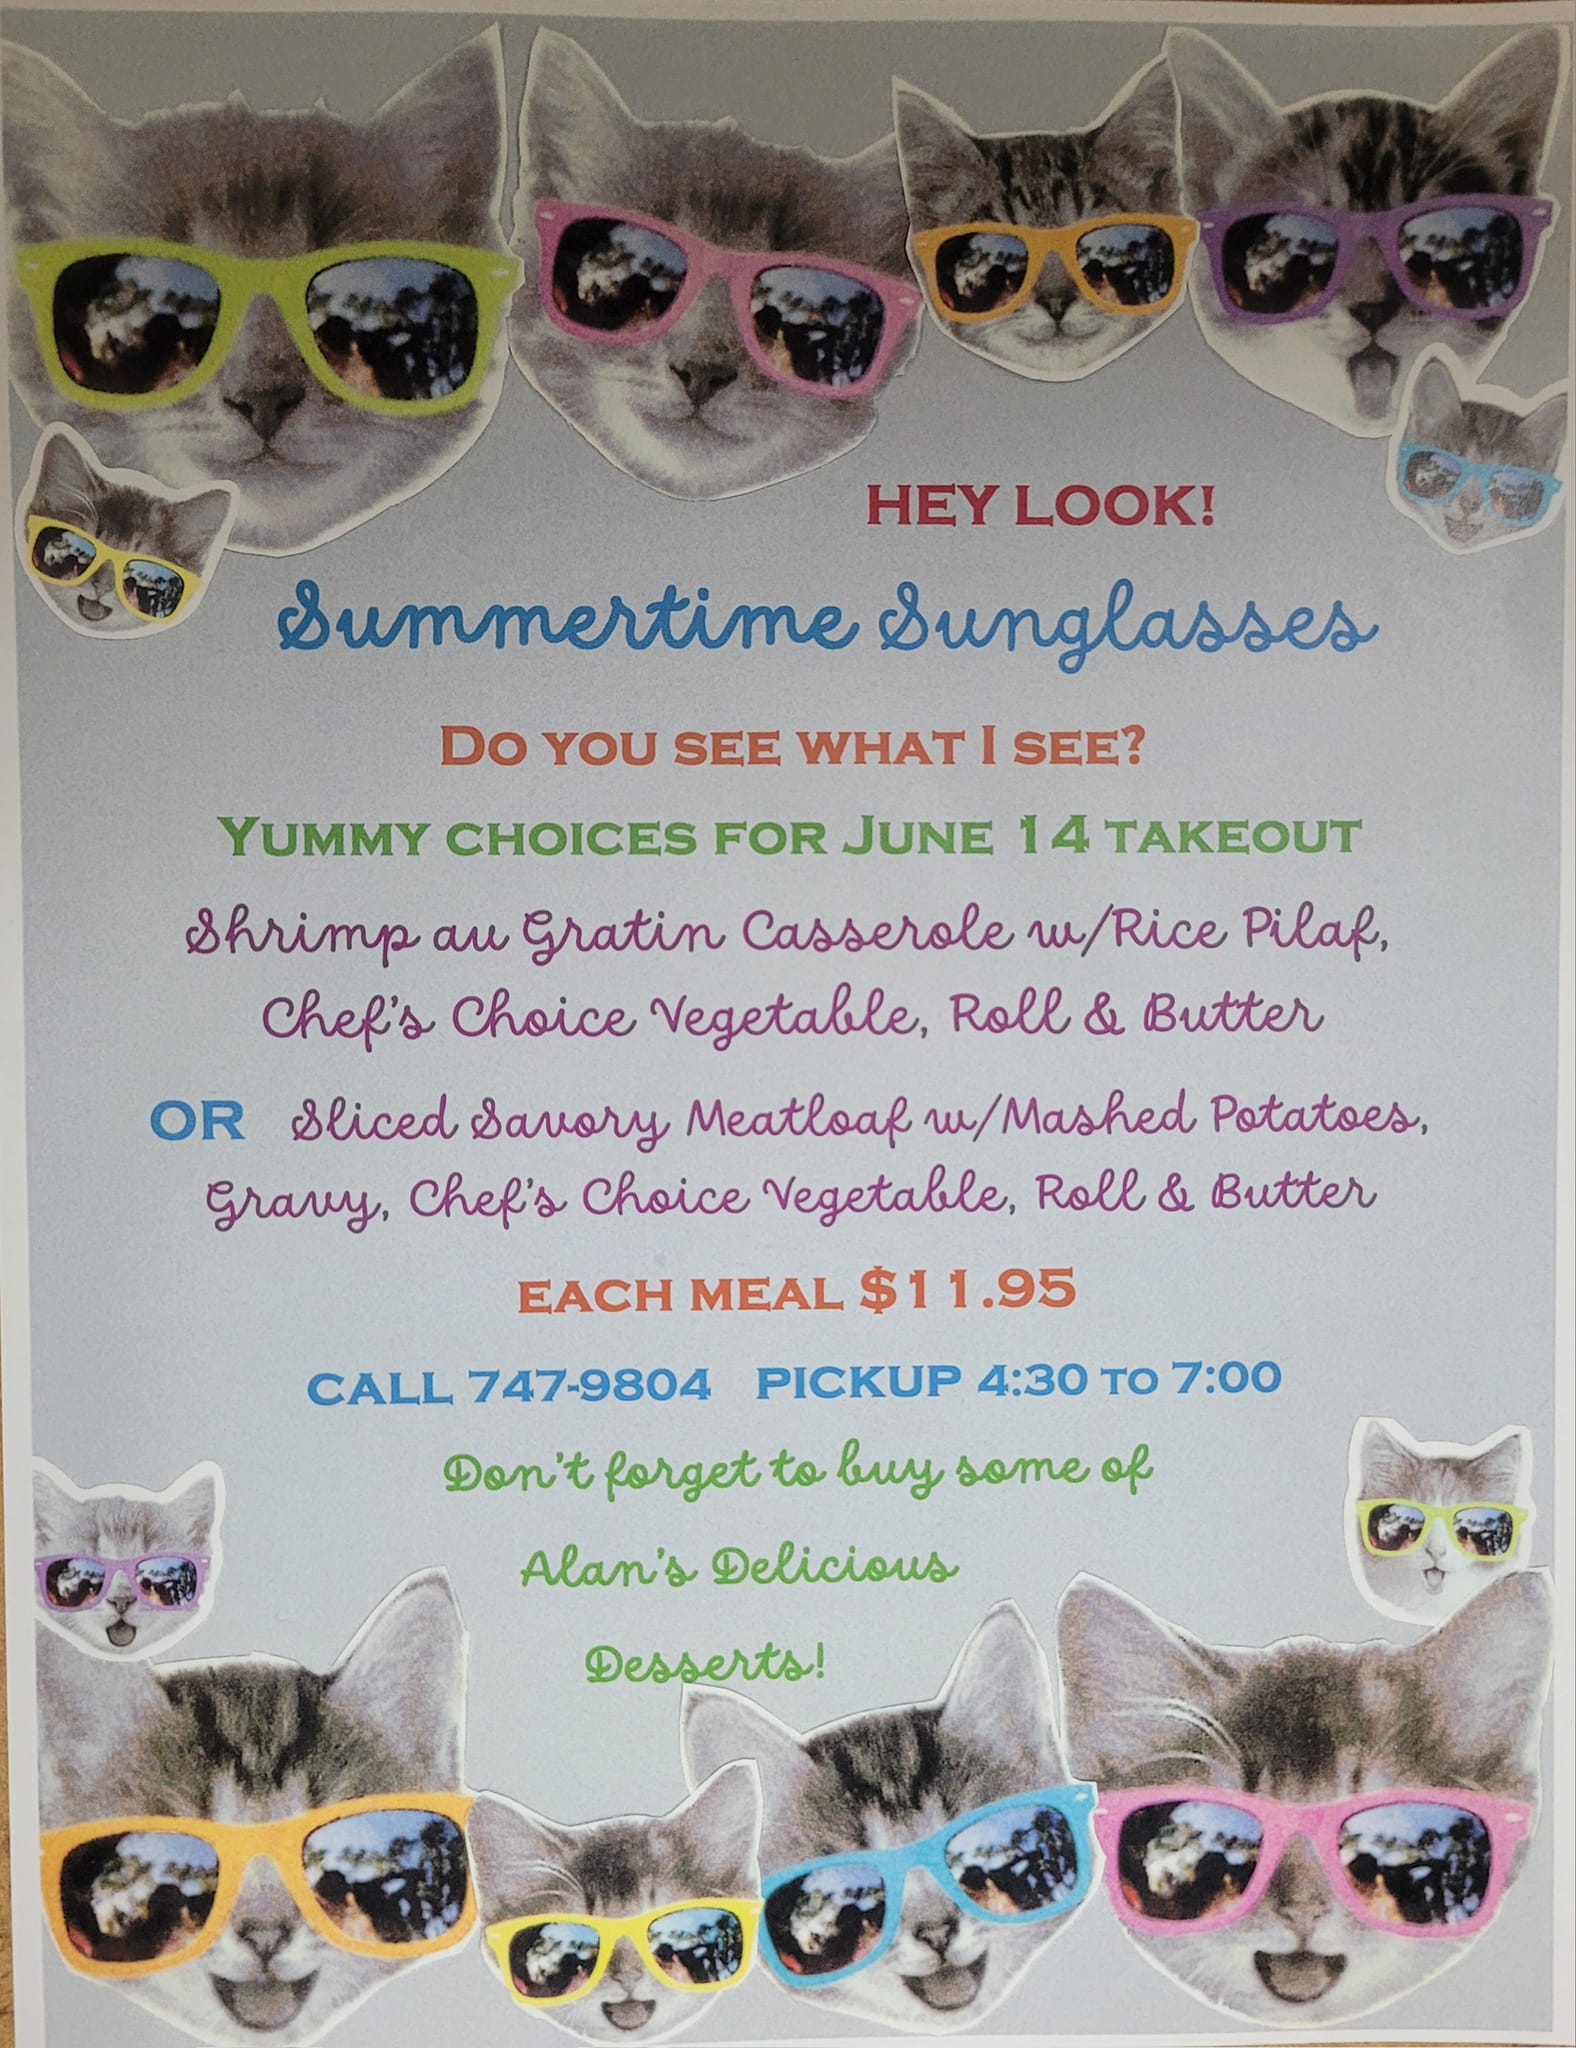 HEY LOOK!
Summertime Sunglasses
DO YOU SEE WHAT I SEE?
YUMMY CHOICES FOR JUNE 14 TAKEOUT
Shrimp au Gratin Casserole w/Rice Pilaf,
Chef's Choice Vegetable, Roll & Butter
OR Sliced Savory Meatloaf w/Mashed Potatoes,
Gravy, Chef's Choice Vegetable, Roll & Butter
EACH MEAL $11.95
CALL 747-9804 PICKUP 4:30 TO 7:00
Don't forget to buy some of
Alan's Delicious
Desserts!